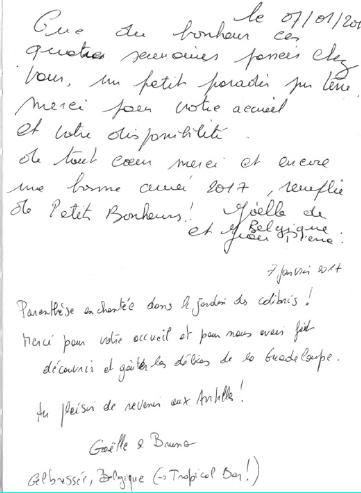 le 07/01/201
Que du bonheur ces
quatre semaines passées chez
vous, un petit paradis sur terre
merci pour votre accueil
et votre disponibilité.
de tout coeur merci et encore
une bonne année 2017, remplie
de Petits Bonheurs! Joëlle de
Belgique
et
7 janvier 2017
Parenthèse enchantée dans le jardin des colibris !
Merci pour votre accueil et pour nous avoir fait
découvrir et goûter les délices de la Guadeloupe.
Au plaisir de revenir aux Antilles !
Gaëlle & Bruno
Belgique (→ Tropical Bar !)